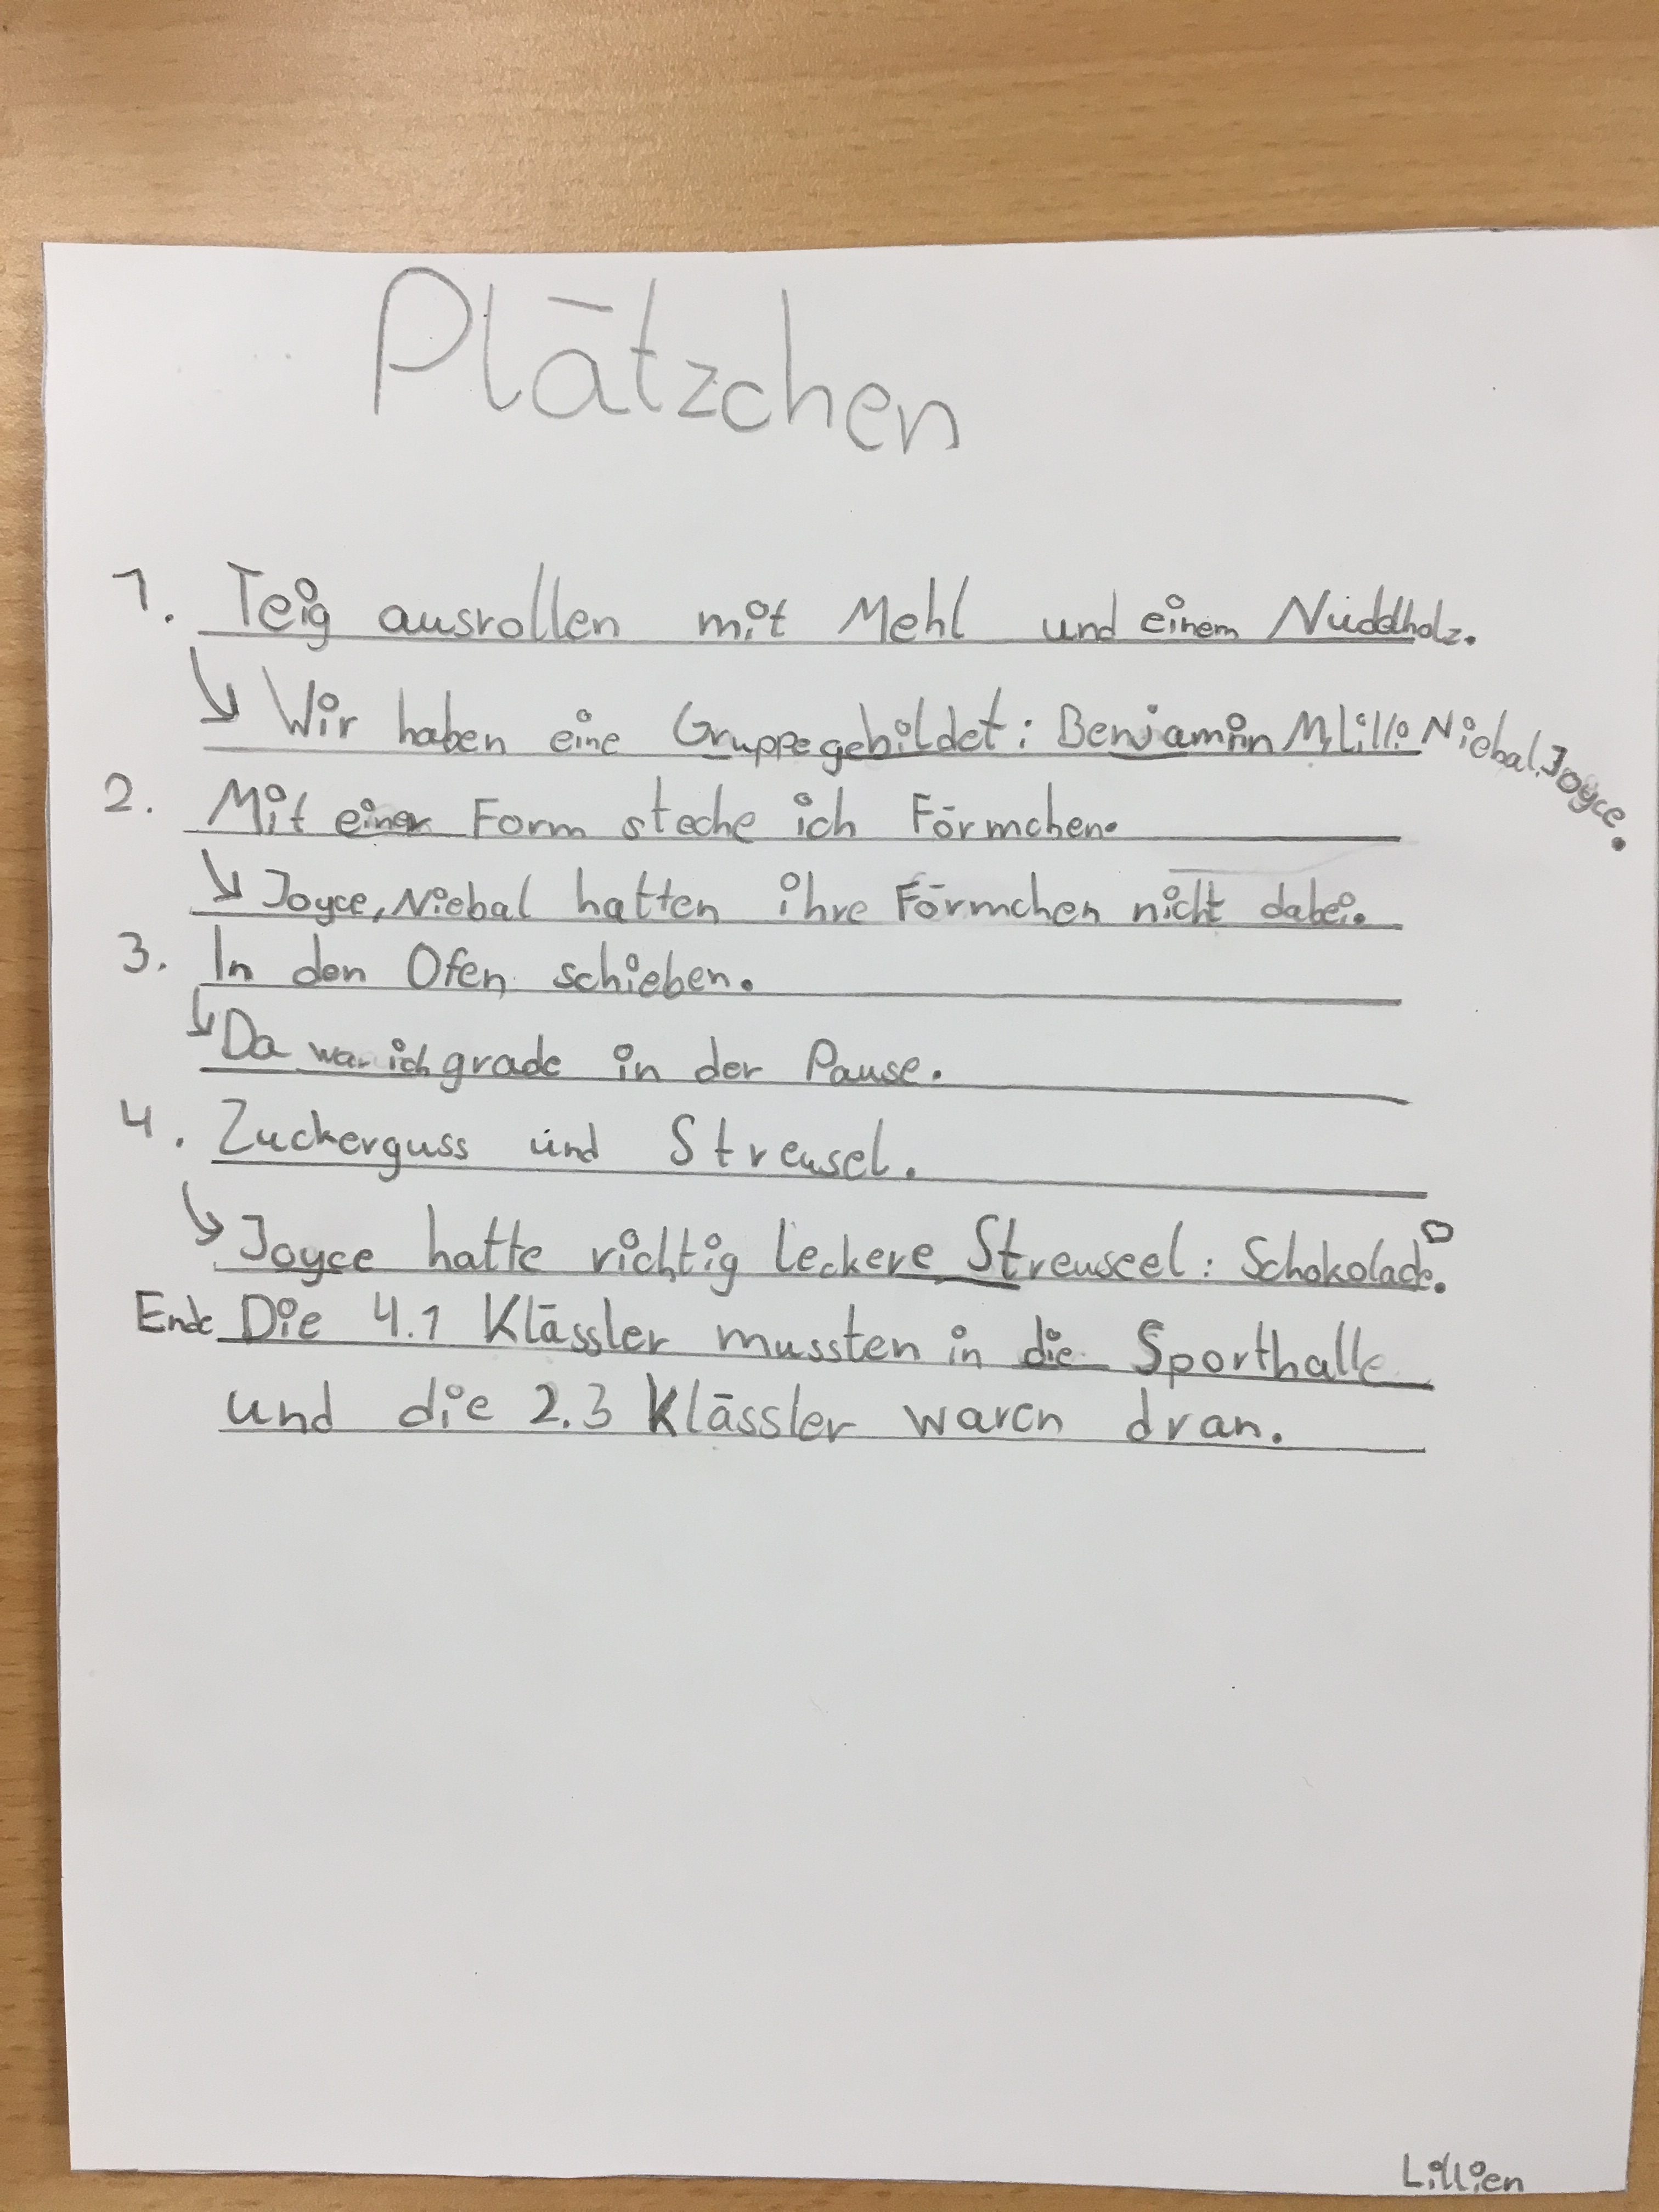 Plätzchen
1. Teig ausrollen mit Mehl und einem Nuddelholz.
↳ Wir haben eine Gruppe gebildet: Benjamin M, Lilli Niebal, Joyce.
2. Mit einer Form steche ich Förmchen.
↳ Joyce, Niebal hatten ihre Förmchen nicht dabei.
3. In den Ofen schieben.
↳ Da war ich grade in der Pause.
4. Zuckerguss und Streusel.
↳ Joyce hatte richtig leckere Streuseel: Schokolade.
Ende Die 4.1 Klässler mussten in die Sporthalle
und die 2.3 Klässler waren dran.
Lillien